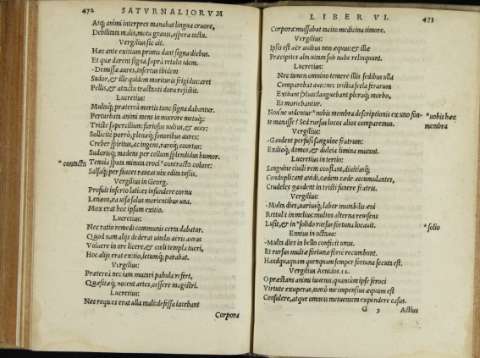 472 SATVRNALIORVM
Atq; animi interpres manabat lingua cruore,
Debilitata malis, motu grauis, aspera tactu.
Vergilius sic ait.
Hæc ante exitium primis dant signa diebus.
Et quæ darent signa supra retulo idem.
-Demissæ aures, incertus ibidem
Sudor, & ille quidem morituris frigidus: aret
Pellis, & attactu tractanti dura resistit.
Lucretius:
Multaq; præterea mortis tunc signa dabantur.
Perturbata animi mens in mœrore metuq;
Triste supercilium: furiosus uultus, et acer:
Sollicitæ porro, plenæq; sonoribus aures:
Creber spiritus, ac ingens, raroq; coortus:
Sudorisq; madens per collum splendidus humor.
*contacta Tenuia sputa minuta croci *contractu colore:
Salsaq; per fauces rauca uix edita tussis.
Vergilius in Georg.
Profuit inserto latices infundere cornu
Lenæos, ea uisa salus morientibus una.
Mox erat hoc ipsum exitio.
Lucretius:
Nec ratio remedi communis certa dabatur.
Quod nam alijs dederat uitalis aeris auras
Voluere in ore licere, & cœli templa tueri,
Hoc alijs erat exitio, letumq; parabat.
Vergilius:
Præterea nec iam mutari pabula refert,
Quæsitæq; nocent artes, cessere magistri.
Lucretius:
Nec requies erat ulla mali: defessa iacebant
Corpora
LIBER VI. 473
Corpora: mussabat tacito medicina timore.
Vergilius:
Ipsis est aer auibus non æquus: & illæ
Præcipites alta uitam sub nube relinquunt.
Lucretius:
Nec tamen omnino temere illis sedibus ulla
Comparebat auis: nec tristia secla ferarum
Exibant syluis: languebant pleraq; morbo,
Et moriebantur.
Nonne uidentur *uobis membra descriptionis ex uno fon- *uobis hæc membra
te manasse? Sed rursus locos alios comparemus.
Vergilius:
-Gaudent perfusi sanguine fratrum:
Exilioq; domos, & dulcia limina mutant.
Lucretius in tertio:
Sanguine ciuili rem conflant, diuitiasq;
Conduplicant auidi, cædem cæde accumulantes,
Crudeles gaudent in tristi funere fratris.
Vergilius:
-Multa dies, uariusq; labor mutabilis æui
Rettulit in melius: multos alterna reuisens
Lusit, & in *solido rursus fortuna locauit. *solio
Ennius in octauo:
-Multa dies in bello conficit unus.
Et rursus multæ fortunæ forte recumbunt.
Haud quaquam quenquam semper fortuna secuta est.
Vergilius Aeneidos 12
O præstans animi iuuenis, quantum ipse feroci
Virtute exuperas, tanto me impensius æquum est
Consulere, atque omnes metuentem expendere casus.
G 3 Actius